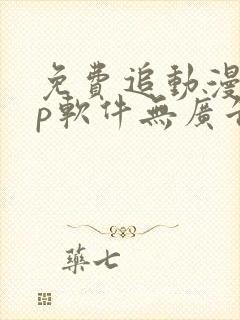 免費追動漫
p軟件無廣告
藥七